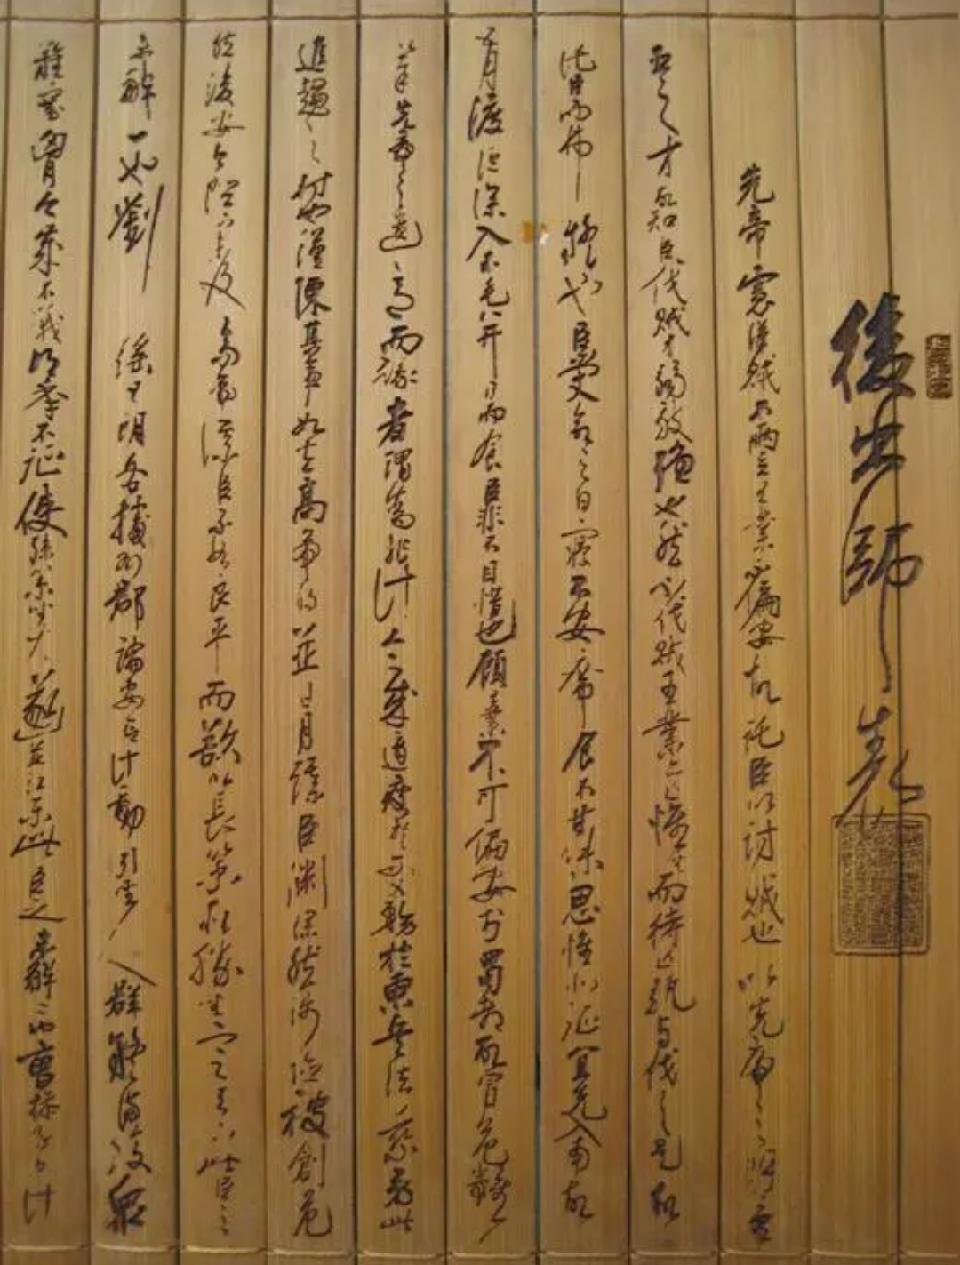 後出師表
先帝慮漢賊不兩立王業不偏安故託臣以討賊也以先帝之明量
臣之才故知臣伐賊才弱敵強也然不伐賊王業亦亡惟坐而待亡孰與伐之是故
託臣而弗疑也臣受命之日寢不安席食不甘味思惟北征宜先入南故
五月渡瀘深入不毛并日而食臣非不自惜也顧業不可偏安於蜀都故冒危難
奉先帝之遺意而議者謂為非計今賊適疲於西又務於東兵法乘勞此
進趨之時也謹陳其事如左高帝明並日月謀臣淵深然涉險被創危
然後安今陛下未及高帝謀臣不如良平而欲以長策取勝坐定天下此臣之
未解一也劉繇王朗各據州郡論安言計動引聖人群疑滿腹眾
難塞胸今歲不戰明年不征使孫策坐大遂並江東此臣之未解二也曹操智計